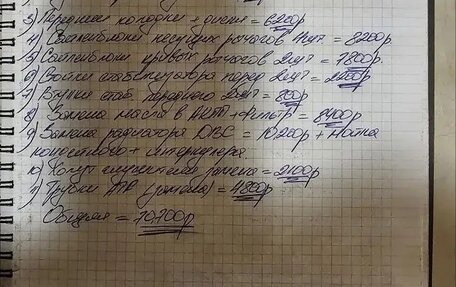 3) Передние колодки + диски = 6200р
4) Сайлентблоки несущих рычагов 4шт. = 8200р
5) Сайлентблоки кривых рычагов 2шт = 7800р.
6) стабилизатора перед 2шт =
7) Втулки стаб. переднего 2шт = 800р
8) Замена масла в АКПП + фильтр = 8400р
9) Замена радиатора ДВС = 10200р +
+ интеркулера.
10) Хомут глушителя замена = 2100р
11) Трубки (замена) = 4800р
Общая = 70,700р